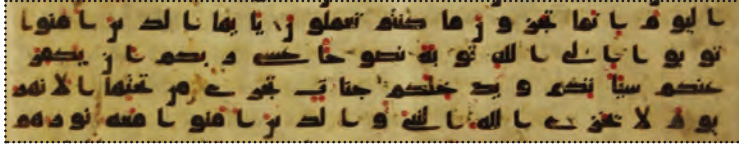 اليوم انما تجزون ما كنتم تعملون يايها الذين امنوا
توبوا الى الله توبة نصوحا عسى ربكم ان يكفر
عنكم سياتكم ويدخلكم جنات تجرى من تحتها الانهر
يوم لا يخزى الله النبى والذين امنوا معه نورهم